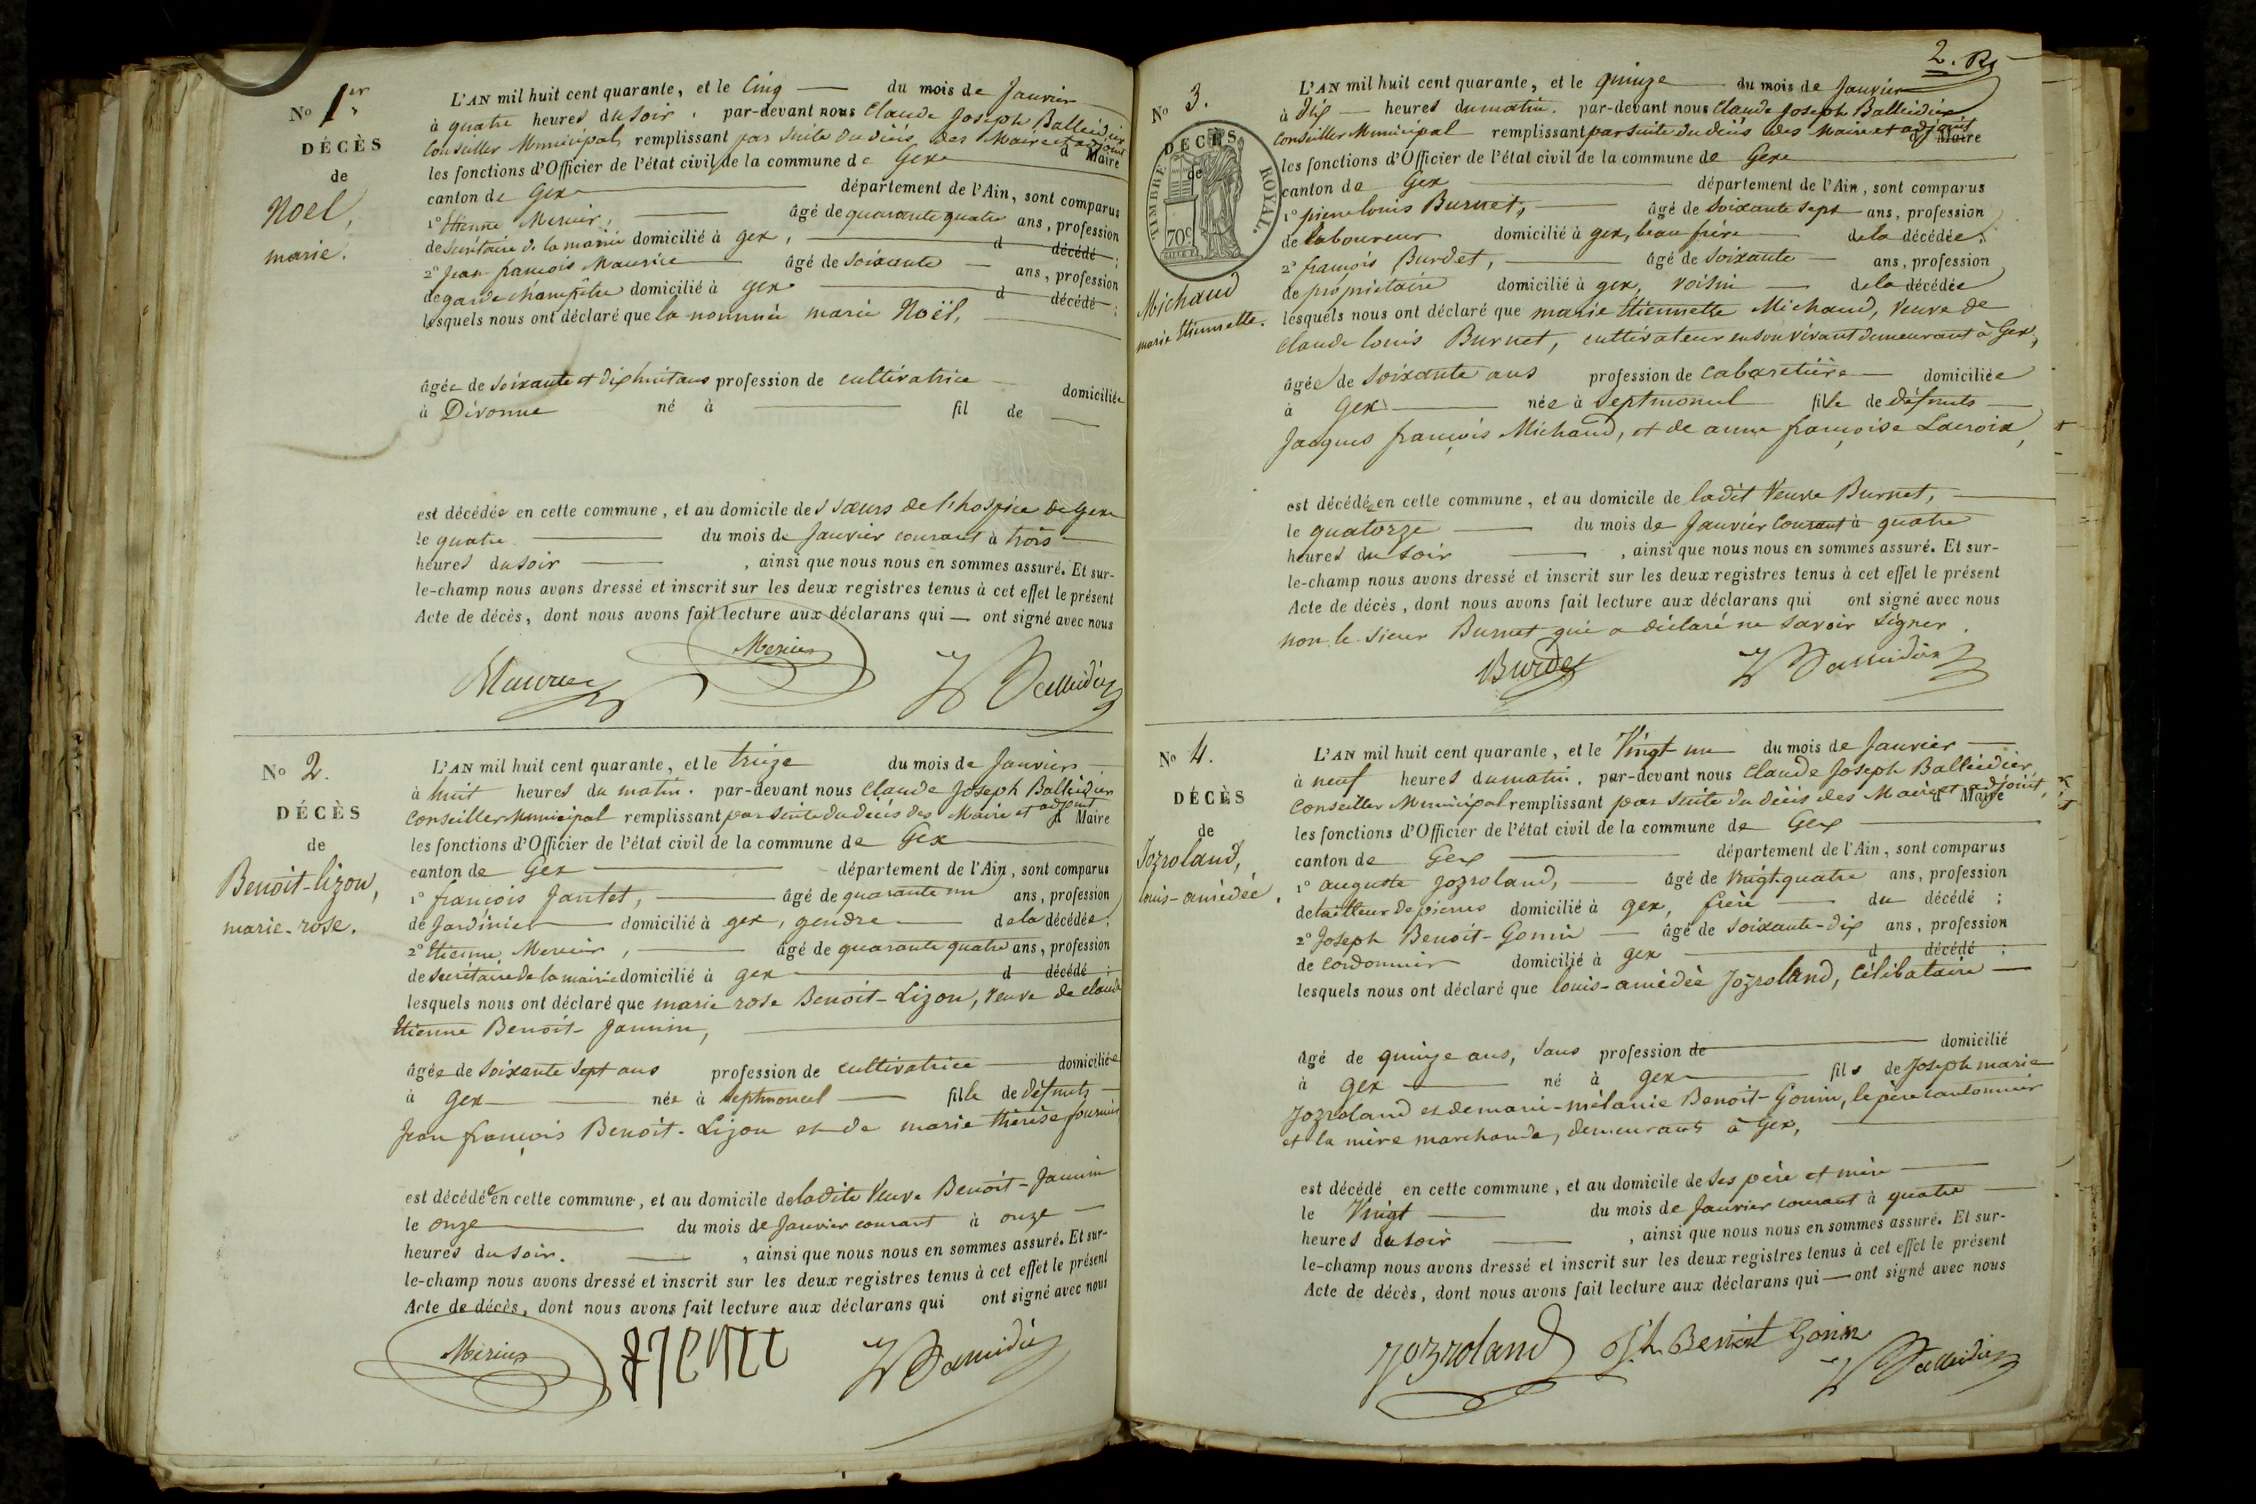 No 1er
DÉCÈS
de
Noël,
marie.
L'AN mil huit cent quarante, et le Cinq du mois de Janvier
à quatre heures du soir. par-devant nous Claude Joseph Balleidier
Conseiller Municipal remplissant par suite du décès des Maire et adjoint d Maire
les fonctions d'Officier de l'état civil de la commune de Gex
canton de Gex département de l'Ain, sont comparus
1° Etienne Mercier, âgé de quarante quatre ans, profession
de secrétaire de la mairie domicilié à gex, d décédé ;
2° Jean-françois Maurice âgé de soixante ans, profession
de garde champêtre domicilié à gex d décédé ;
lesquels nous ont déclaré que la nommée marie Noël,
âgée de soixante et dix huit ans profession de cultivatrice domiciliée
à Divonne né à fil de
est décédée en cette commune, et au domicile des sœurs de l'hospice de Gex
le quatre du mois de Janvier courant à trois
heures du soir , ainsi que nous nous en sommes assuré. Et sur-
le-champ nous avons dressé et inscrit sur les deux registres tenus à cet effet le présent
Acte de décès, dont nous avons fait lecture aux déclarans qui ont signé avec nous
Maurice Mercier Balleidier
No 2.
DÉCÈS
de
Benoit-Lizon,
marie-rose.
L'AN mil huit cent quarante, et le treize du mois de Janvier
à huit heures du matin. par-devant nous Claude Joseph Balleidier
Conseiller Municipal remplissant par suite du décès des Maire et adjoint d Maire
les fonctions d'Officier de l'état civil de la commune de Gex
canton de Gex département de l'Ain, sont comparus
1° françois Jantet, âgé de quarante un ans, profession
de Jardinier domicilié à gex, gendre de la décédée ;
2° Etienne Mercier, âgé de quarante quatre ans, profession
de secrétaire de la mairie domicilié à gex d décédé ;
lesquels nous ont déclaré que marie rose Benoit-Lizon, veuve de claude
Etienne Benoit-Jannin,
âgée de soixante sept ans profession de cultivatrice domiciliée
à gex née à septmoncel fille de défunts
Jean françois Benoit-Lizon et de marie thérèse fournier
est décédée en cette commune, et au domicile de ladite Veuve Benoit-Jannin
le onze du mois de Janvier courant à onze
heures du soir. , ainsi que nous nous en sommes assuré. Et sur-
le-champ nous avons dressé et inscrit sur les deux registres tenus à cet effet le présent
Acte de décès, dont nous avons fait lecture aux déclarans qui ont signé avec nous
Mercier Balleidier
2.
No 3.
DÉCÈS
de
TIMBRE ROYAL.
70c
Michaud
marie Etiennette.
L'AN mil huit cent quarante, et le quinze du mois de Janvier
à dix heures du matin. par-devant nous Claude Joseph Balleidier
Conseiller Municipal remplissant par suite du décès des Maire et adjoint d Maire
les fonctions d'Officier de l'état civil de la commune de Gex
canton de Gex département de l'Ain, sont comparus
1° pierre louis Burnet, âgé de soixante sept ans, profession
de laboureur domicilié à gex, beau frère de la décédée ;
2° françois Burdet, âgé de soixante ans, profession
de propriétaire domicilié à gex, voisin de la décédée
lesquels nous ont déclaré que marie Etiennette Michaud, veuve de
claude louis Burnet, cultivateur en son vivant demeurant à Gex,
âgée de soixante ans profession de cabaretière domiciliée
à Gex née à septmoncel fille de défunts
Jacques françois Michaud, et de anne françoise Lacroix,
est décédée en cette commune, et au domicile de ladit Veuve Burnet,
le quatorze du mois de Janvier courant à quatre
heures du soir , ainsi que nous nous en sommes assuré. Et sur-
le-champ nous avons dressé et inscrit sur les deux registres tenus à cet effet le présent
Acte de décès, dont nous avons fait lecture aux déclarans qui ont signé avec nous
non le sieur Burnet qui a déclaré ne savoir signer.
Burdet Balleidier
No 4.
DÉCÈS
de
Jozroland,
louis-amédée.
L'AN mil huit cent quarante, et le Vingt un du mois de Janvier
à neuf heures du matin. par-devant nous Claude Joseph Balleidier
Conseiller Municipal remplissant par suite du décès des Maire et adjoint, d Maire
les fonctions d'Officier de l'état civil de la commune de Gex
canton de Gex département de l'Ain, sont comparus
1° auguste Jozroland, âgé de vingt quatre ans, profession
de tailleur de pierres domicilié à gex, frère du décédé ;
2° Joseph Benoit-Gonin âgé de soixante-dix ans, profession
de cordonnier domicilié à gex d décédé ;
lesquels nous ont déclaré que louis-amédée Jozroland, célibataire
âgé de quinze ans, sans profession de domicilié
à gex né à gex fils de Joseph marie
Jozroland et de marie-mélanie Benoit-Gonin, le père cantonnier
et la mère marchande, demeurants à Gex,
est décédé en cette commune, et au domicile de ses père et mère
le Vingt du mois de Janvier courant à quatre
heures du soir , ainsi que nous nous en sommes assuré. Et sur-
le-champ nous avons dressé et inscrit sur les deux registres tenus à cet effet le présent
Acte de décès, dont nous avons fait lecture aux déclarans qui ont signé avec nous
Jozroland Jh. Benoit Gonin Balleidier